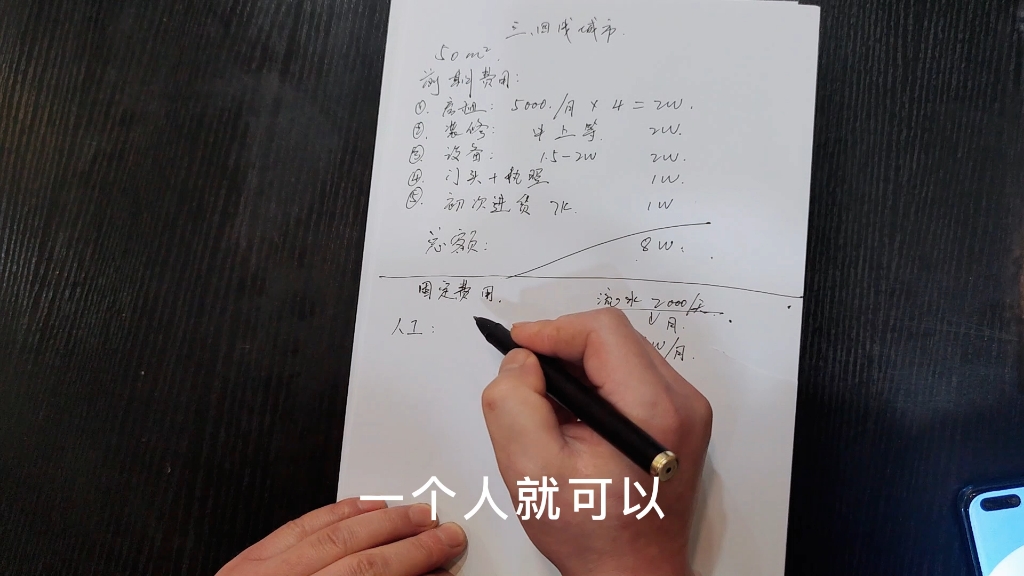 三.四线城市.
50m²
前期费用:
①. 房租: 5000./月 × 4 = 2W.
②. 装修: 中上等. 2W.
③. 设备: 1.5-2W 2W.
④. 门头+执照 1W.
⑤. 初次进货 7K. 1W
总额: 8W.
固定费用. 流水 2000/天
人工: 月:
W/月.
一个人就可以